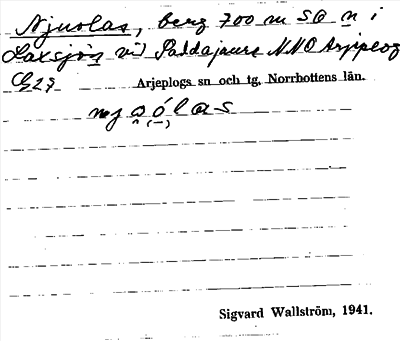 Njuolas, berg 700 m SO n i
Laxsjön vid Paddajaure NNO Arjeplog
Arjeplogs sn och tg, Norrbottens län.
Sigvard Wallström, 1941.